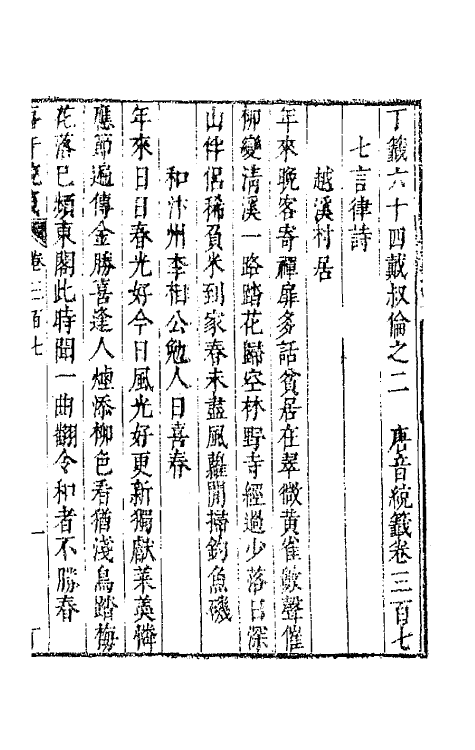 丁籤六十四戴叔倫之二　唐音統籤卷三百七
七言律詩
越溪村居
年來晚客寄禪扉多話貧居在翠微黃雀數聲催
柳變清溪一路踏花歸空林野寺經過少落日深
山伴侶稀負米到家春未盡風蘿閒掃釣魚磯
和汴州李相公勉人日喜春
年來日日春光好今日風光好更新獨獻菜羹憐
應節遍傳金勝喜逢人煙添柳色看猶淺鳥踏梅
花落已頻東閣此時聞一曲翻令和者不勝春
卷三百七　一